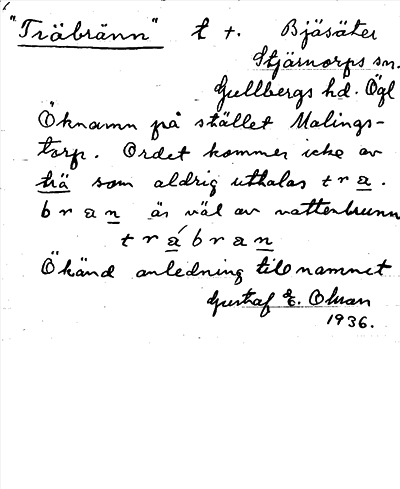 "Träbränn" t +. Bjäsäter
Stjärnorps sn.
Gullbergs hd. Ögl
Öknamn på stället Malings-
torp. Ordet kommer icke av
trä som aldrig uthalas tra.
bran är väl av vattenbrunn
trábran
Okänd anledning till namnet
Gustaf E. Olsson
1936.